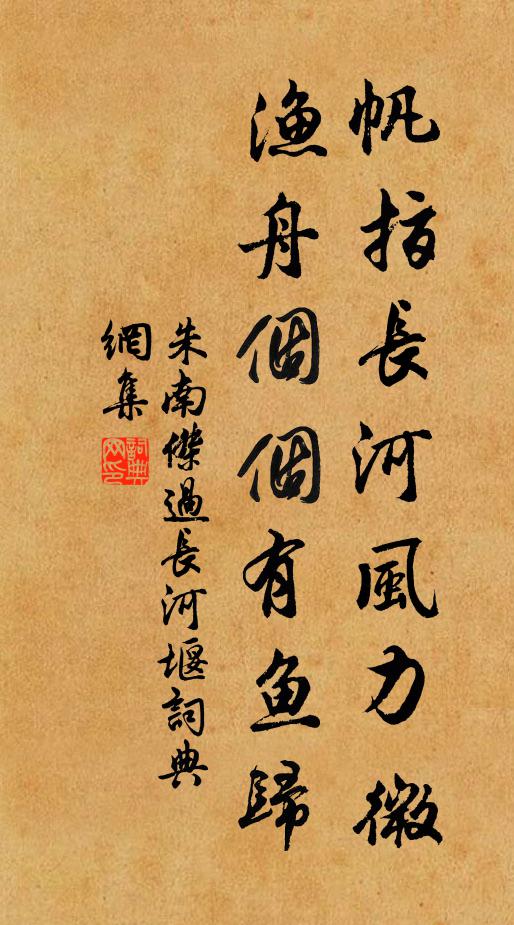 帆指長河風力微
漁舟個個有魚歸
朱南傑過長河堰詞典
網集
詞典網印